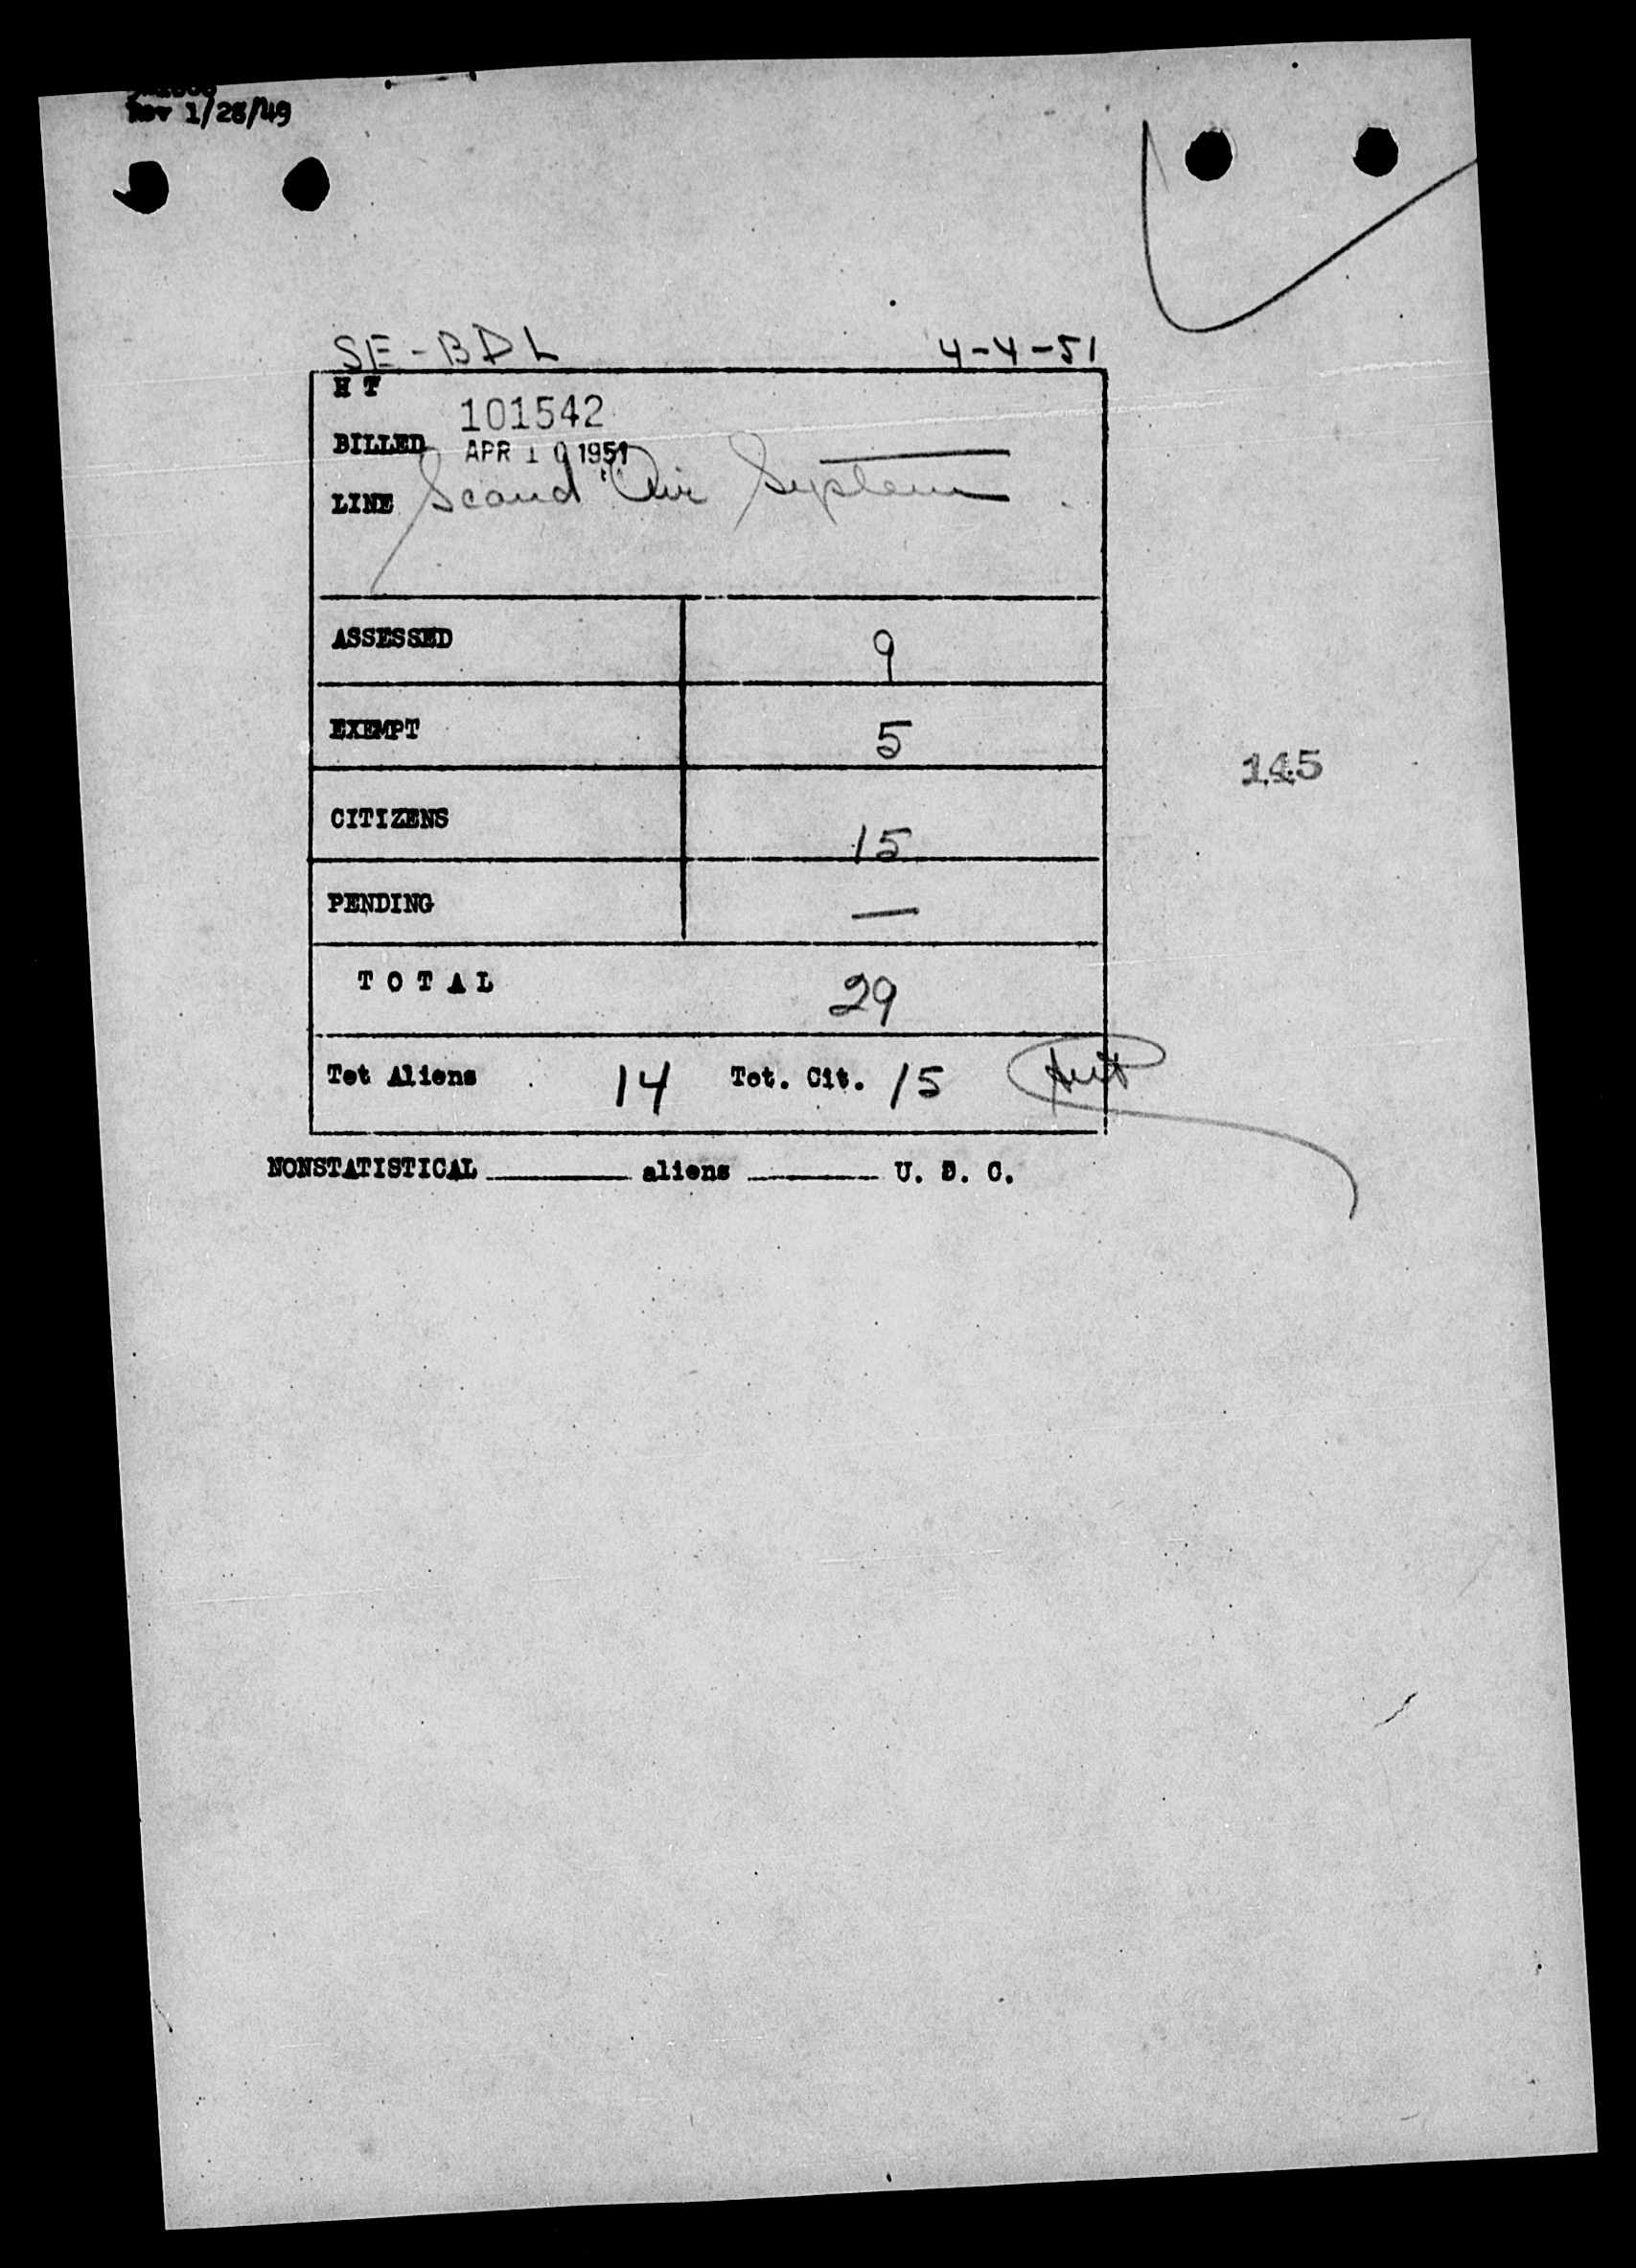 Rev 1/28/49
SE-BDL 4-4-51
H T
101542
BILLED APR 10 1951
LINE Scand Air System
ASSESSED 9
EXEMPT 5
145
CITIZENS 15
PENDING —
TOTAL 29
Tot Aliens 14 Tot. Cit. 15
NONSTATISTICAL ______ aliens ______ U. S. C.